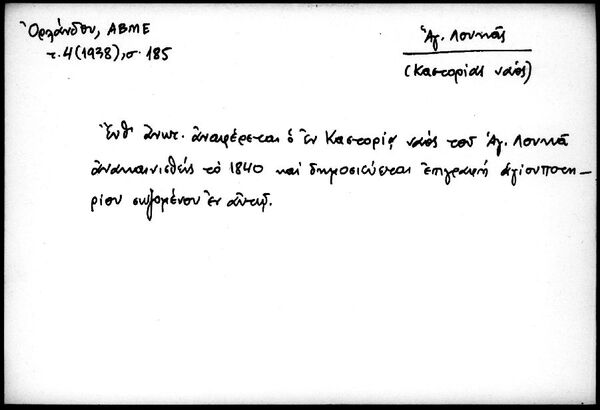 Ὀρλάνδου, ΑΒΜΕ
τ. 4 (1938), σ. 185
Ἁγ. Λουκᾶς
(Καστοριᾶς ναός)
Ἔνθ' ἀνωτ. ἀναφέρεται ὁ ἐν Καστορίᾳ ναός τοῦ Ἁγ. Λουκᾶ
ἀνακαινισθείς τό 1840 καί δημοσιεύεται ἐπιγραφή ἁγίου ποτη-
ρίου σωζομένου ἐν αὐτῷ.